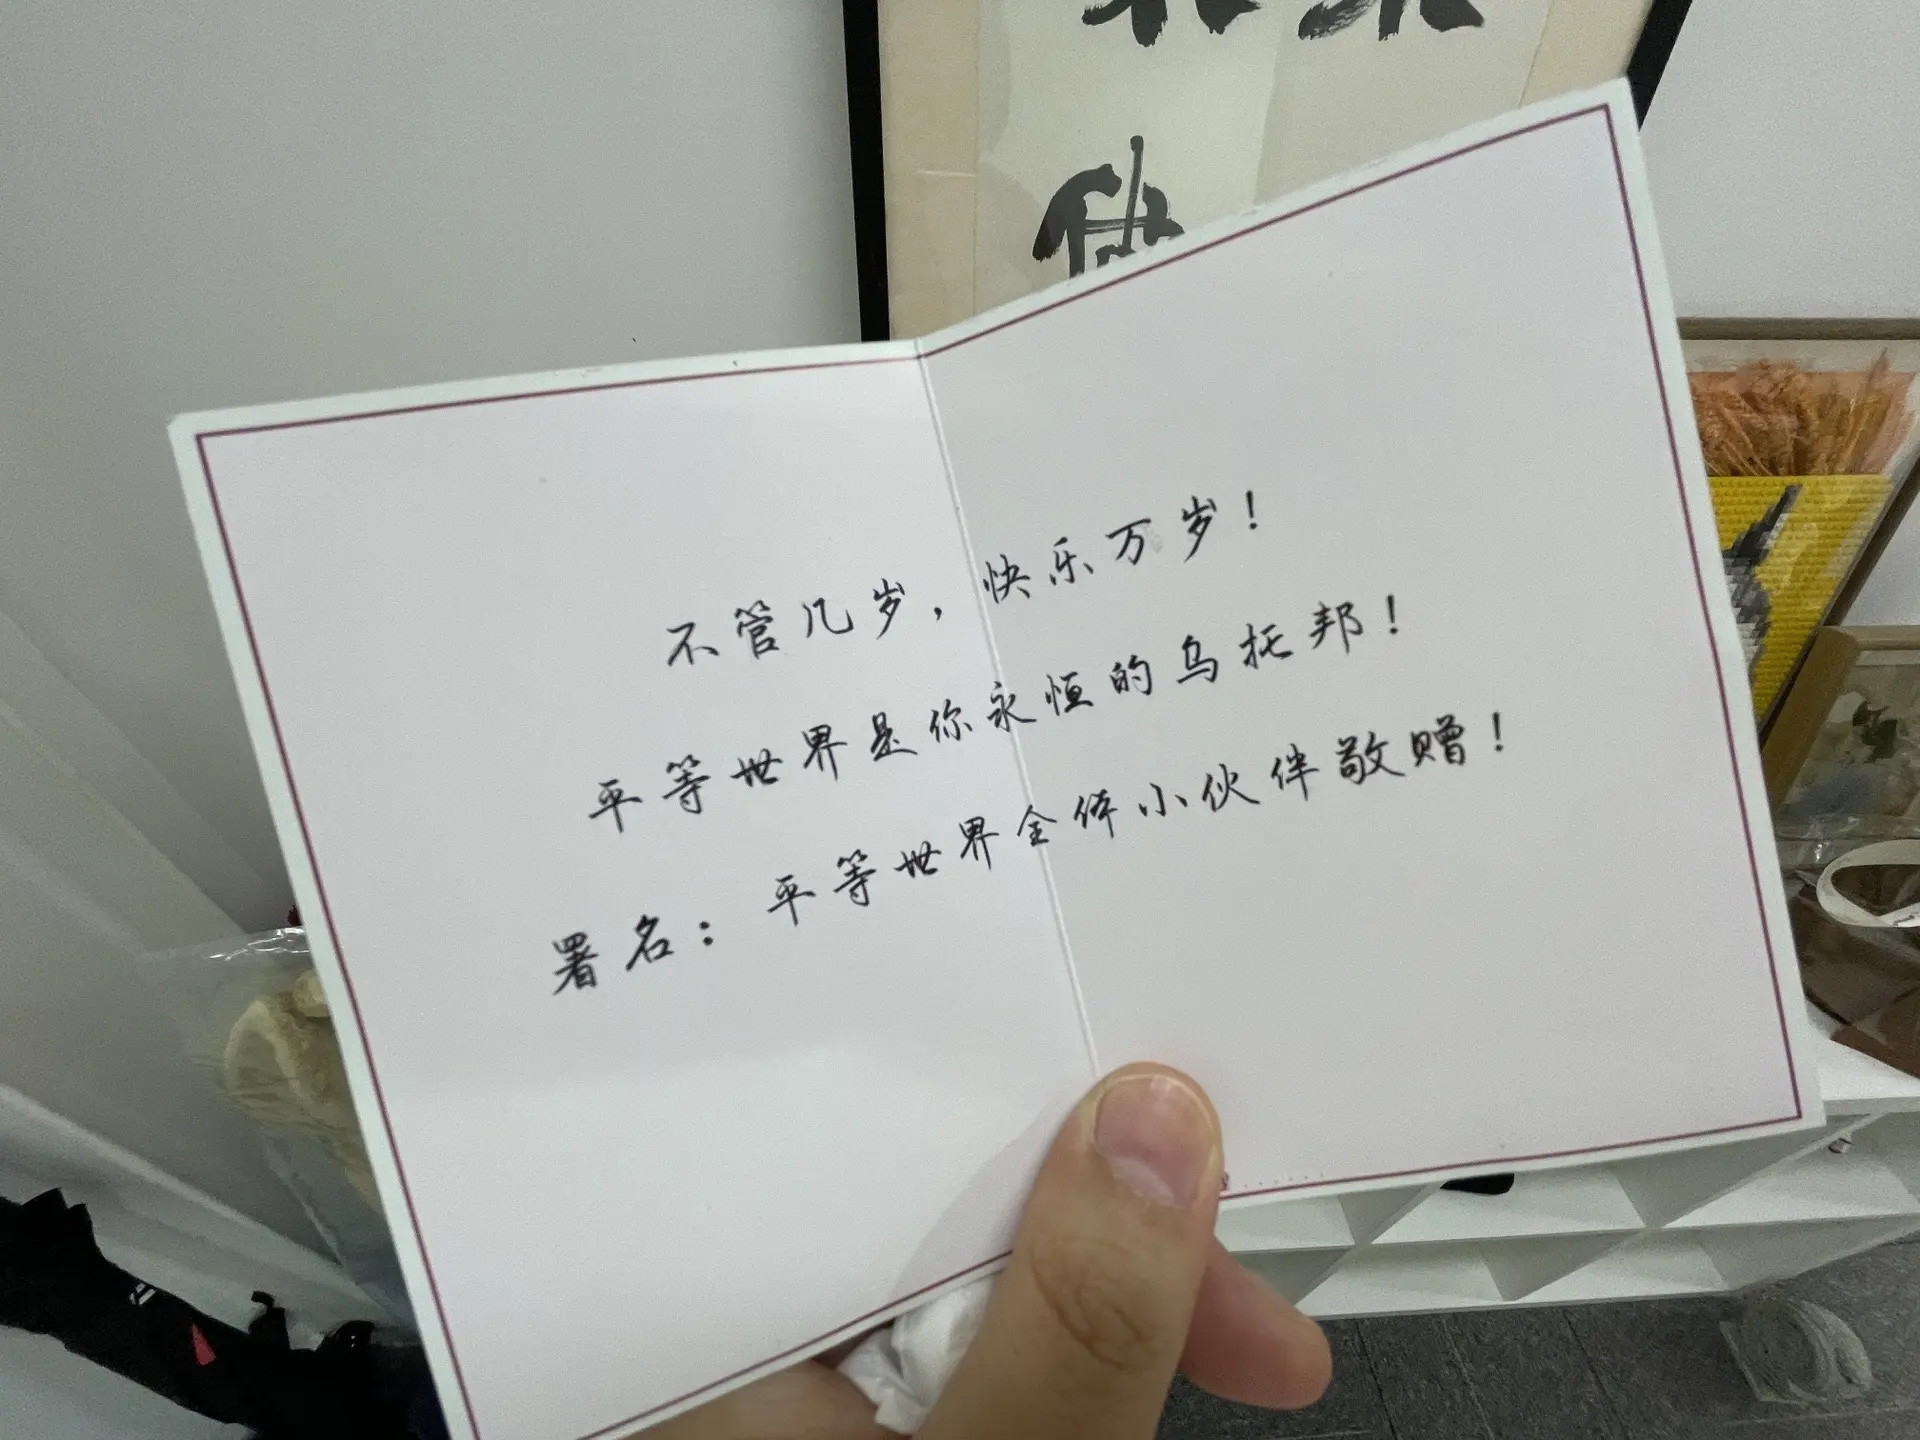 不管几岁，快乐万岁！
平等世界是你永恒的乌托邦！
署名：平等世界全体小伙伴敬赠！